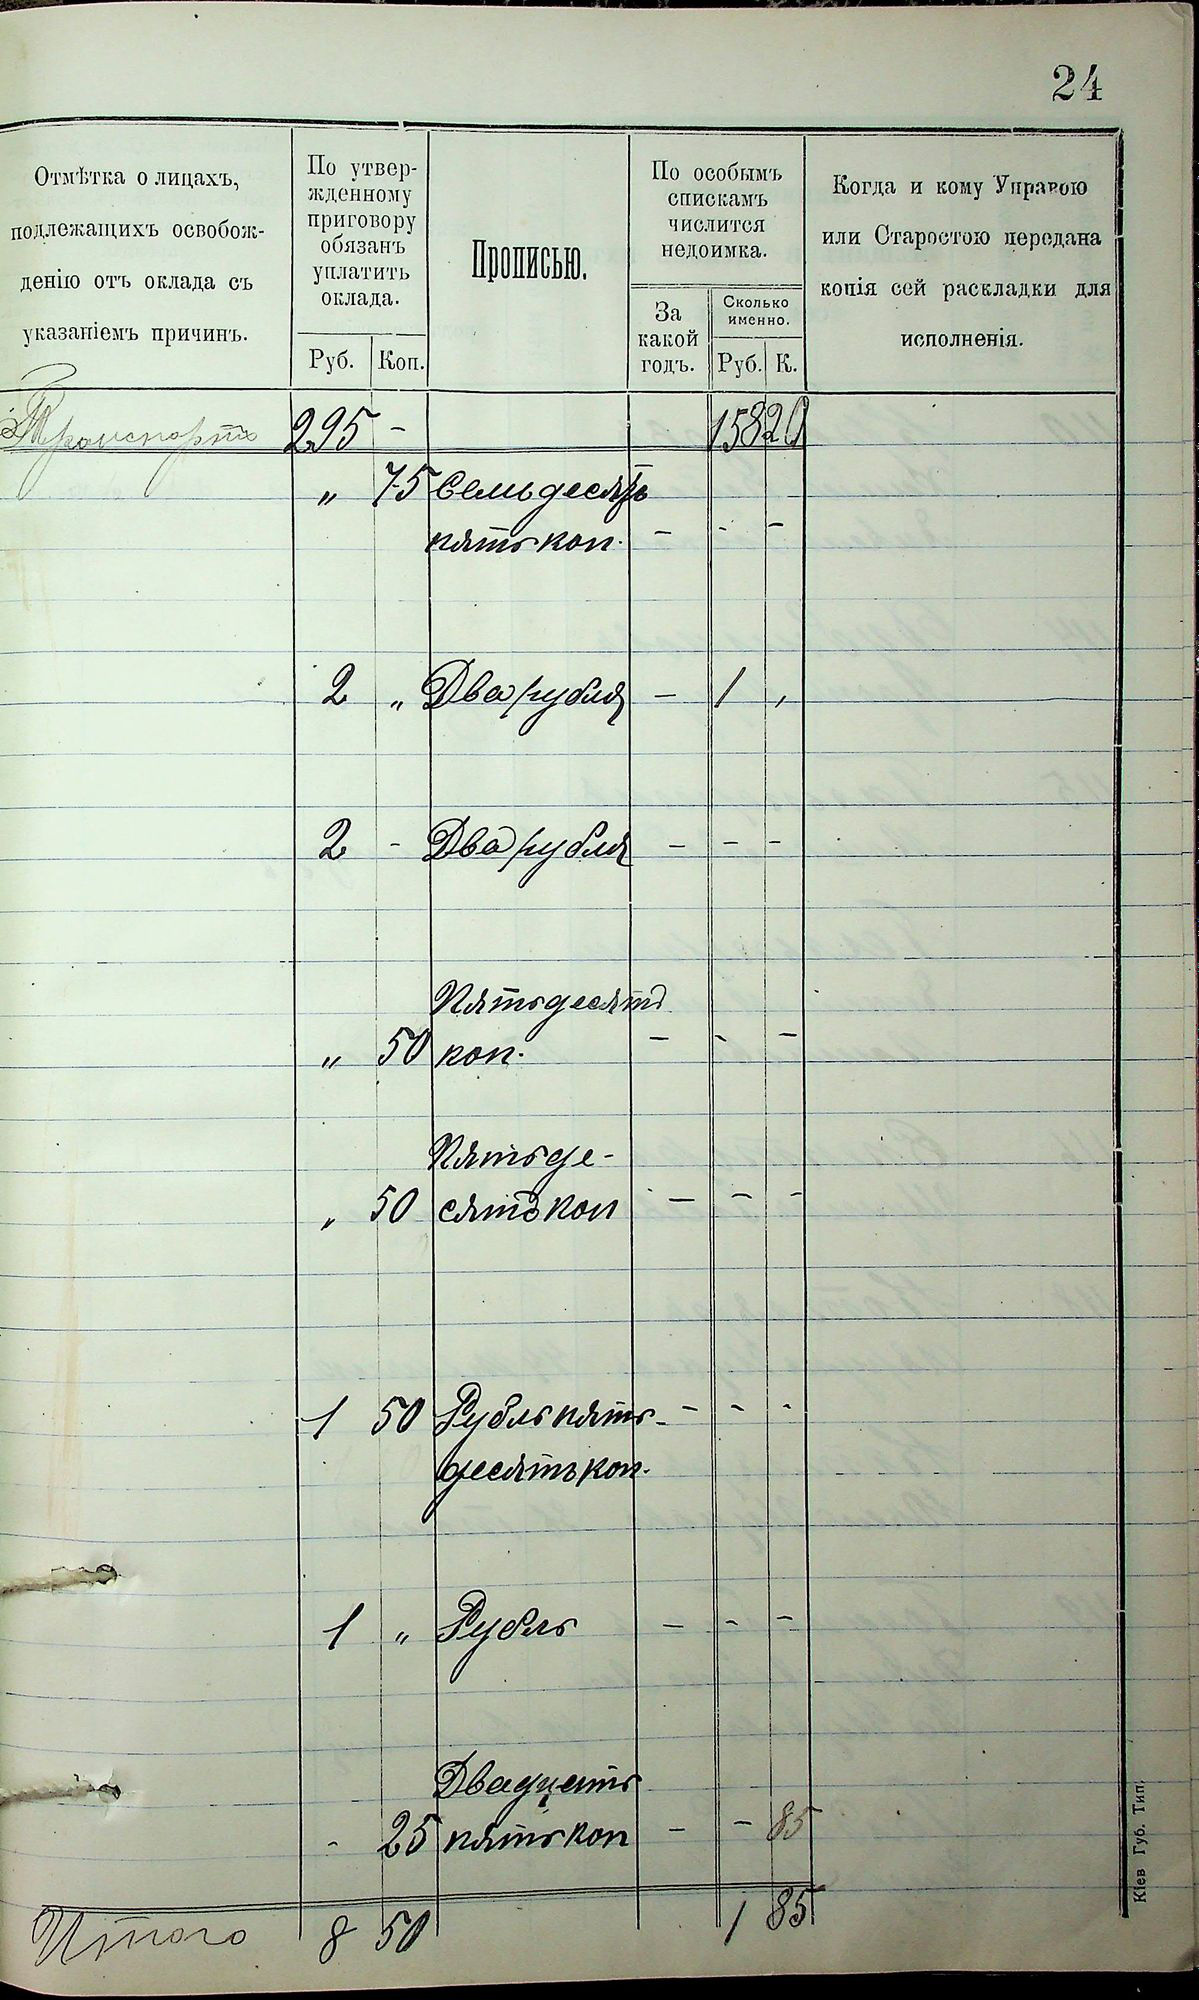 24
Отмѣтка о лицахъ,
подлежащихъ освобож-
денію отъ оклада съ
указаніемъ причинъ.
По утвер-
жденному
приговору
обязанъ
уплатить
оклада.
Руб. Коп.
Прописью.
По особымъ
спискамъ
числится
недоимка.
За
какой
годъ.
Сколько
именно.
Руб. К.
Когда и кому Управою
или Старостою передана
копія сей раскладки для
исполненія.
Транспортъ 295 - 158 20
„ 75 Семьдесятъ
пять коп. - - -
2 „ Два рубля - 1 „
2 - Два рубля - - -
Пятьдесятъ
„ 50 коп. - - -
Пятьде-
„ 50 сятъ коп - - -
1 50 Рубль пять- - - -
десятъ коп.
1 „ Рубль - - -
Двадцать
- 25 пять коп - - 85
Итого 8 50 1 85
Кіев Губ. Тип.